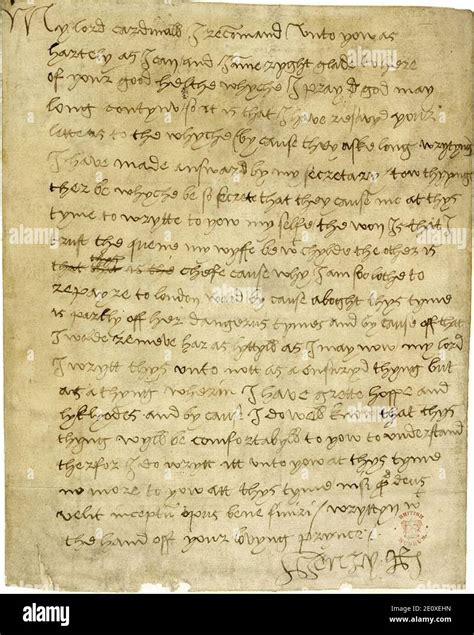 My lord cardinall I recommand unto yow as
hartely as I can and I ame ryght glade to here
of your good helthe whyche I pray god may
long contynw so it is that I have resavyd your
letters to the whyche by cause they aske long wrytyng
I have made answar by my secretary tow thyngs
ther be whyche be so secret that they cause me at thys
tyme to wrytte to yow my selfe the won is that I
trust the quene my wyffe be with chylde the other is
chefe cause why I am so lothe to
repayre to london ward by cause aboght thys tyme
is partly off her dangerus tymes and by cause off that
I wolde remeve har as lyttyll as I may now my lord
I wrytt thys unto not as a ensuryd thyng but
as a thyng wherin I have grette hoppe and
lyklyodes and by cause I do well know that thys
thyng wyll be comfortabyll to yow to understand
therfor I do wrytt itt unto yow at thys tyme
no more to yow att thys tyme nisi quod deus
velit inceptum opus bene finiri wryttyn wt
the hand off your lovyng prynce
Henry R
BRITISH MUSEUM
alamy
2E0XEHN